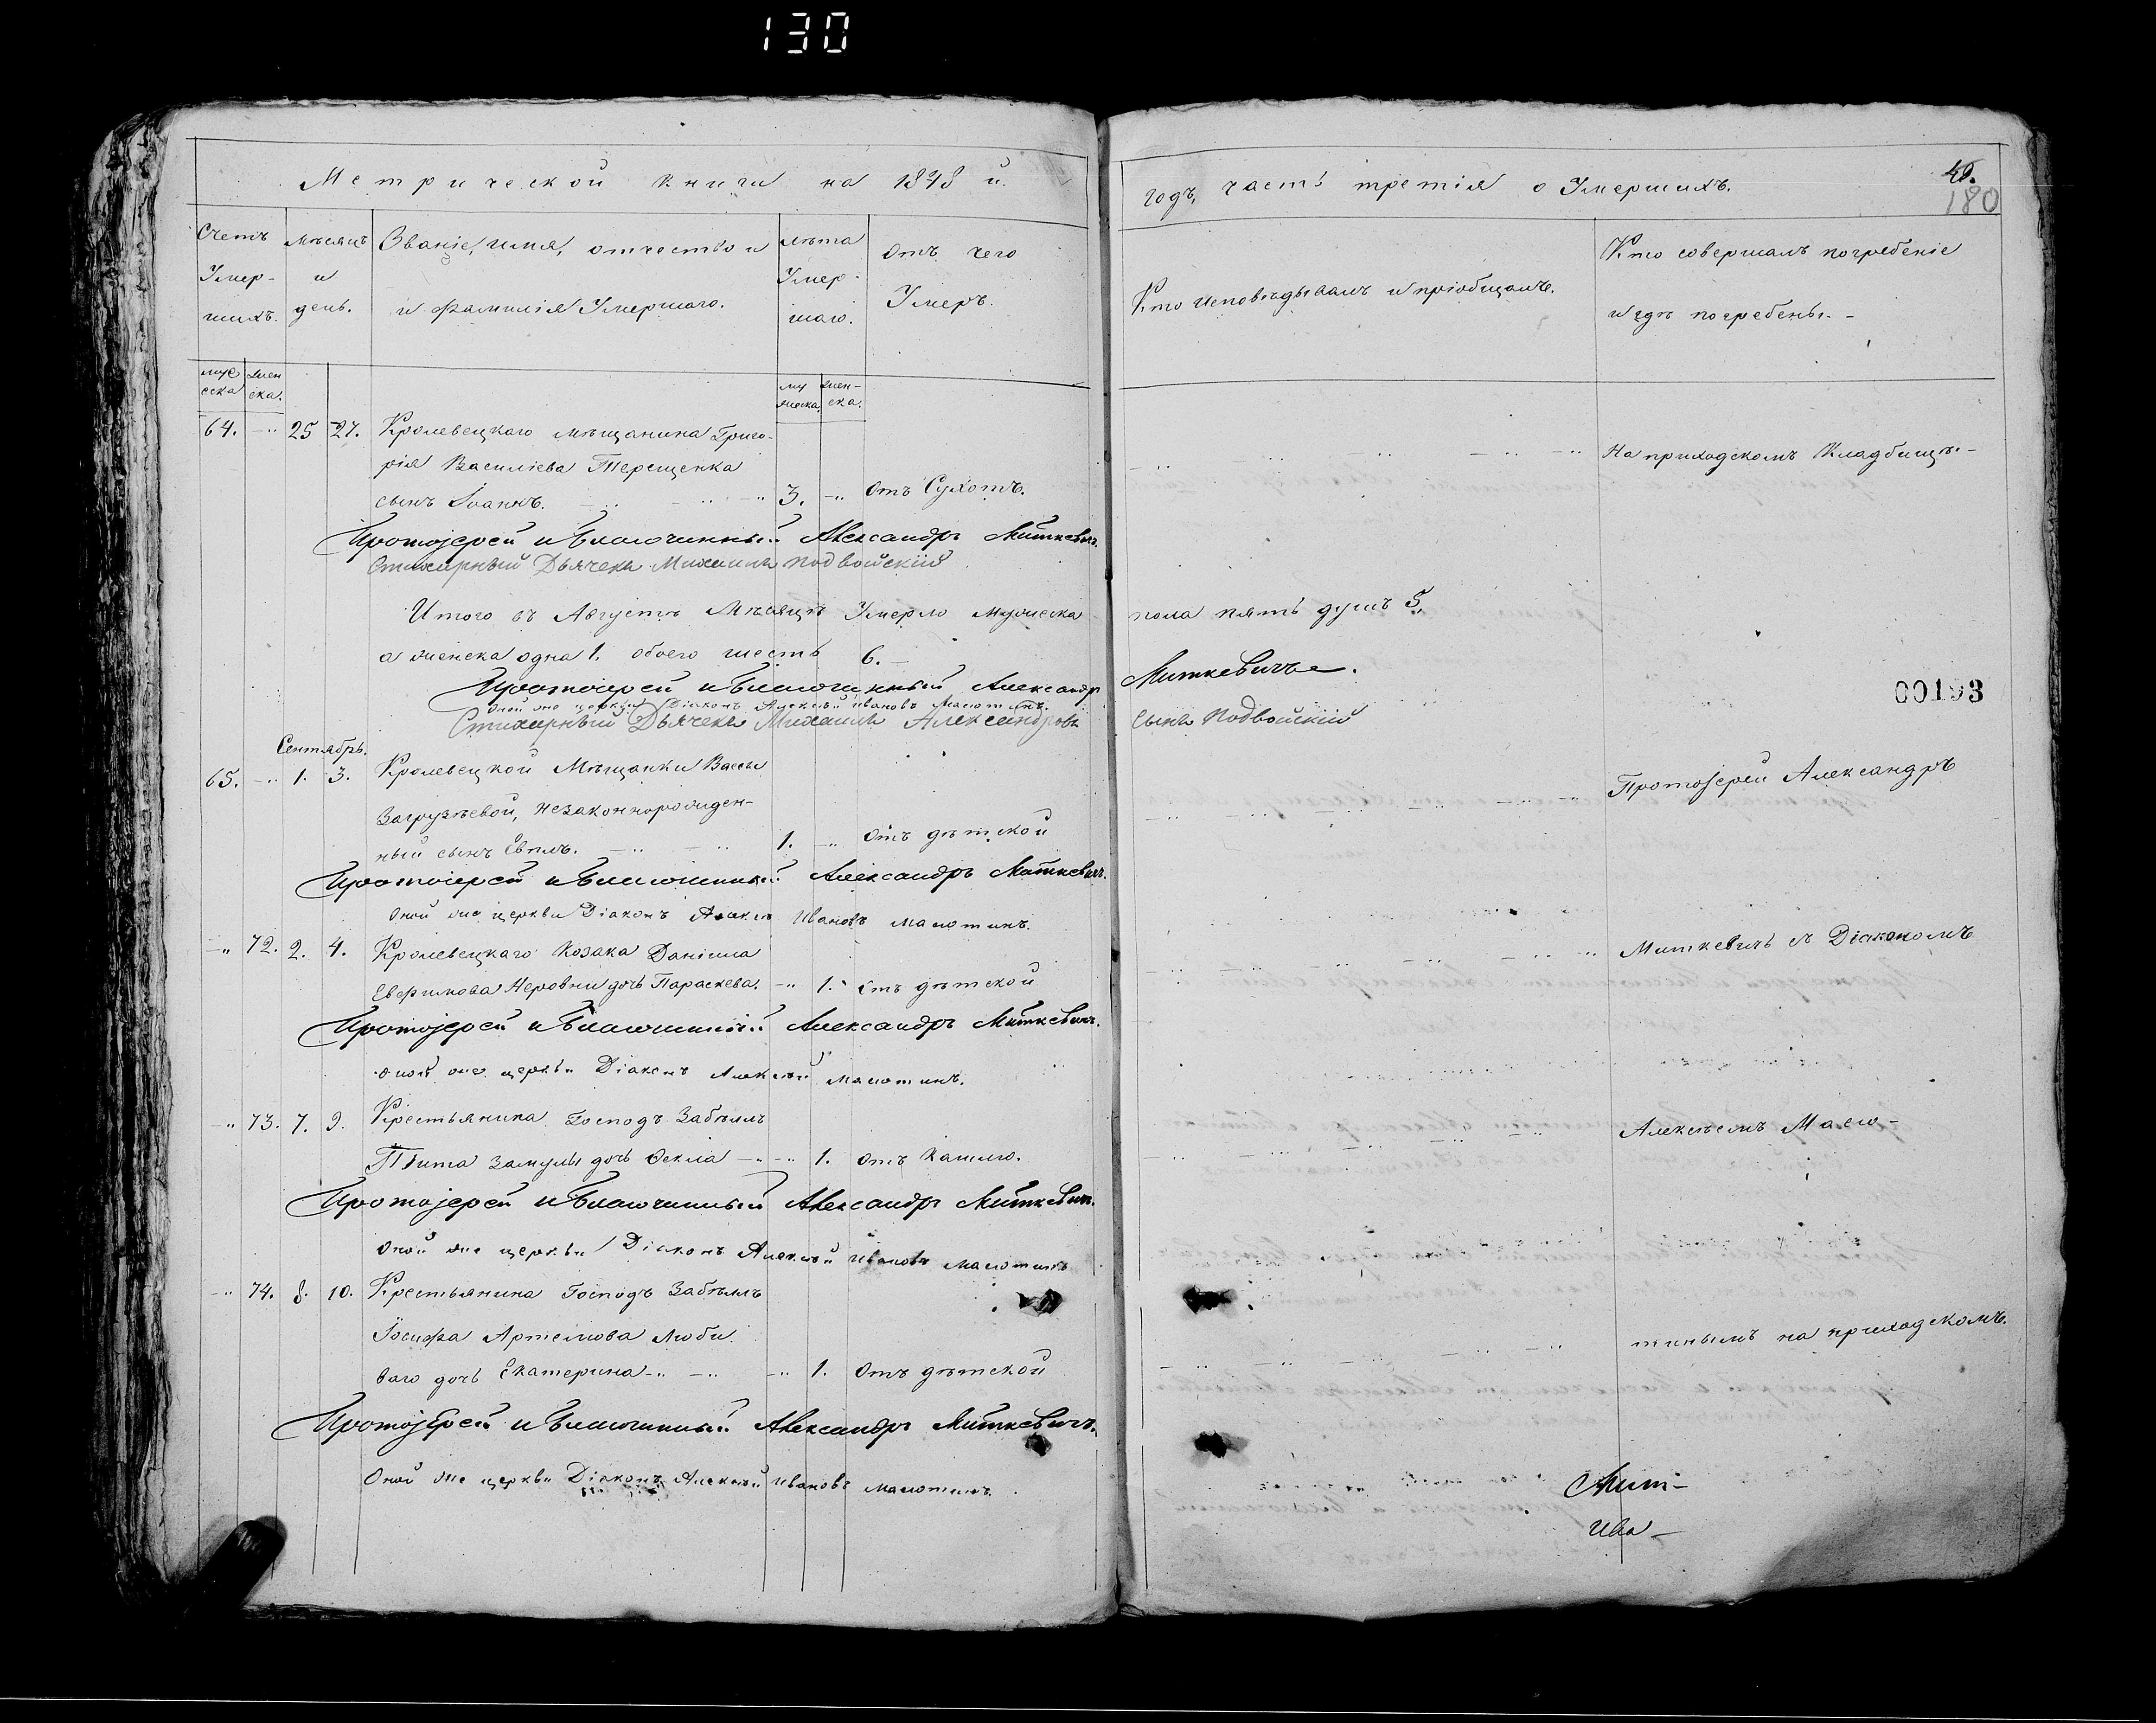 130
Метрической книги на 1848 й.
годъ, часть третія о Умершихъ.
49.
180
Счетъ Умер-шихъ.
Мѣсяцъ и день.
Званіе, имя, отчество и
и фамилія Умершаго.
лѣта Умер-шаго.
Отъ чего
Умеръ.
Кто исповѣдывалъ и пріобщалъ.
Кто совершалъ погребеніе
и гдѣ погребены.-
муж
еска
жен
ска.
му
жеска.
жен-
ска.
64. 25 27. Кролевецкаго мѣщанина Григо-
рія Василіева Терещенка
сынъ Іоаннъ. 3. Отъ Сухотъ.
На приходскомъ Кладбищѣ.-
Протоіерей и Благочинный Александръ Миткевичъ.
Стихарный Дьячекъ Михаилъ Подвойскій
Итого въ Августѣ Мѣсяцѣ Умерло мужеска пола пять душъ 5,
а женска одна 1. обоего шесть 6.
Протоіерей и Благочинный Александръ Миткевичъ.
Оной же церкви Діаконъ Алексѣй Ивановъ Масютинъ.
Стихарный Дьячекъ Михаилъ Александровъ сынъ Подвойскій
00193
Сентябрь.
65. 1. 3. Кролевецкой Мѣщанки Вассы
Загрузѣевой, незаконнорожден-
ный сынъ Евплъ. 1. Отъ дѣтской
Протоіерей Александръ
Протоіерей и Благочинный Александръ Миткевичъ.
Оной же церкви Діаконъ Алексѣй Ивановъ Масютинъ.
72. 2. 4. Кролевецкаго Козака Даніила
Евфимова дочь Параскева. 1. Отъ дѣтской
Миткевичъ съ Діакономъ
Протоіерей и Благочинный Александръ Миткевичъ.
Оной же церкви Діаконъ Алексѣй Масютинъ.
73. 7. 9. Крестьянина Господъ Забѣлъ
Тита Замулы дочь Ѳекла 1. Отъ Кашлю.
Алексѣемъ Масю-
Протоіерей и Благочинный Александръ Миткевичъ.
Оной же церкви Діаконъ Алексѣй Ивановъ Масютинъ
74. 8. 10. Крестьянина Господъ Забѣлъ
Іосифа Артемова Люби
ваго дочь Екатерина 1. Отъ дѣтской
тинымъ на приходскомъ.
Протоіерей и Благочинный Александръ Миткевичъ.
Оной же церкви Діаконъ Алексѣй Ивановъ Масютинъ.
Мит-
Ива-